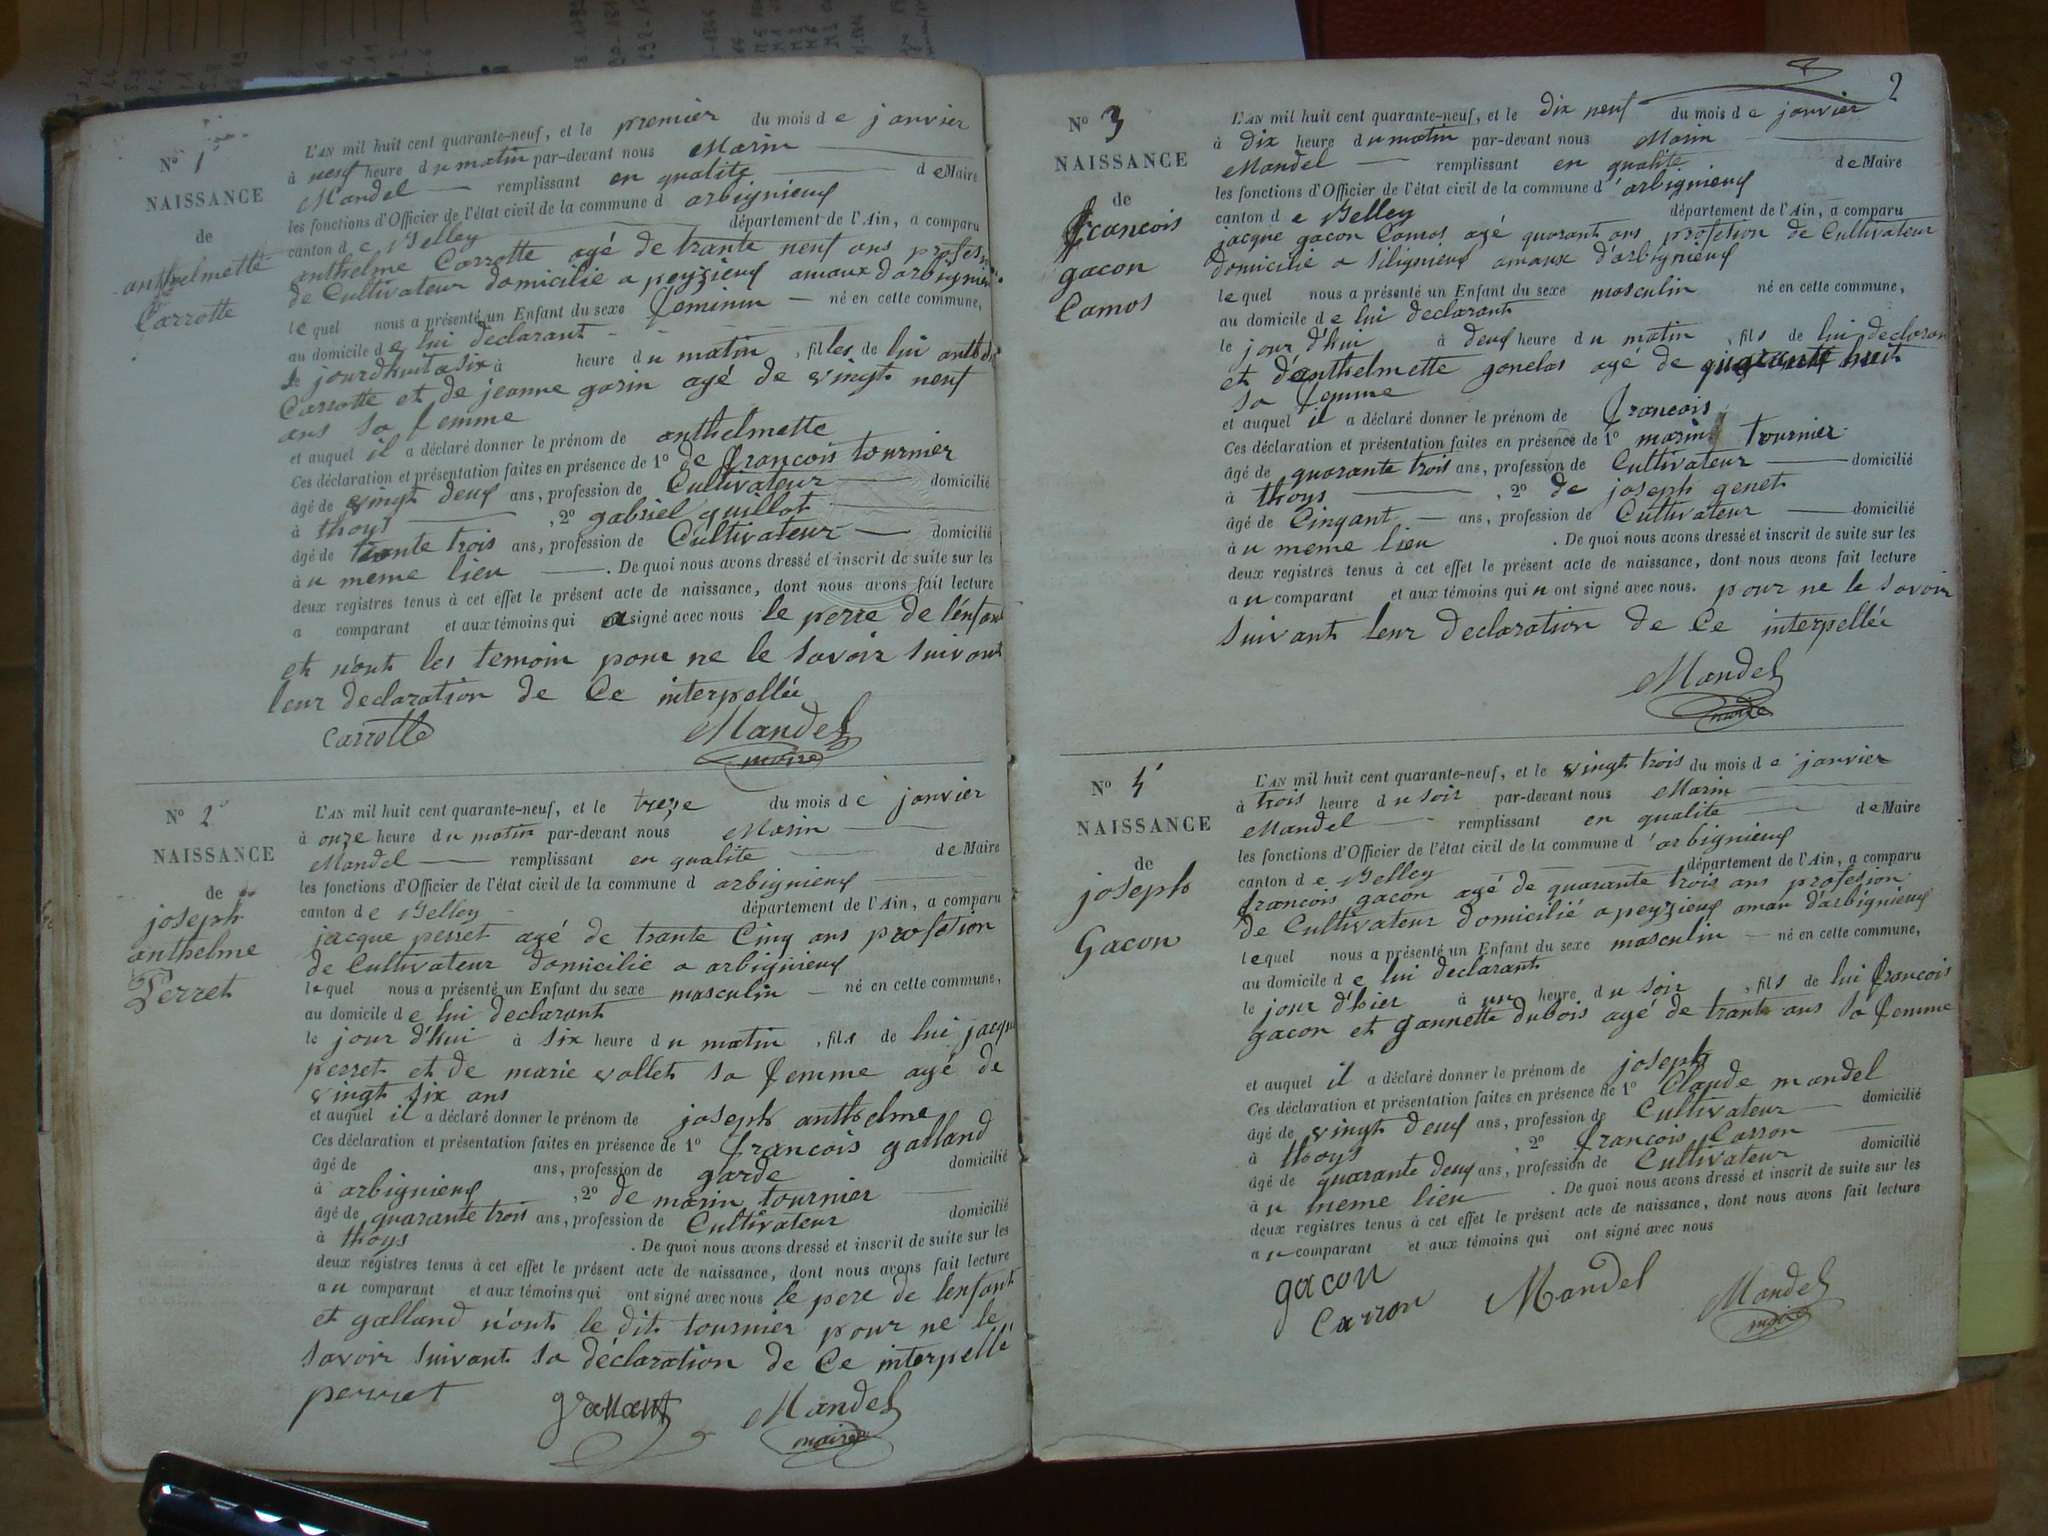 N° 1
NAISSANCE
de
anthelmette
Carrotte
L'AN mil huit cent quarante-neuf, et le premier du mois de janvier
à neuf heure du matin par-devant nous Marin
Mandel remplissant en qualite de Maire
les fonctions d'Officier de l'état civil de la commune d arbignieux
canton de Belley département de l'Ain, a comparu
anthelme Carrotte agé de trante neuf ans
de Cultivateur domicilie a peyzieux amaux d'arbignieux
lequel nous a présenté un Enfant du sexe feminin né en cette commune,
au domicile de lui declarant
le jourdhuit a six à heure du matin, filles de lui
Carrotte et de jeanne garin agé de vingt neuf
ans sa femme
et auquel il a déclaré donner le prénom de anthelmette
Ces déclaration et présentation faites en présence de 1° de françois tournier
âgé de vingt deux ans, profession de Cultivateur domicilié
à thoys , 2° gabriel guillot
âgé de trante trois ans, profession de Cultivateur domicilié
à u meme lieu . De quoi nous avons dressé et inscrit de suite sur les
deux registres tenus à cet effet le présent acte de naissance, dont nous avons fait lecture
a comparant et aux témoins qui a signé avec nous le perre de l'enfant
et n'ont les temoin pour ne le savoir suivant
leur declaration de Ce interpellée
Carrotte Mandel
maire
N° 2
NAISSANCE
de
joseph
anthelme
Perret
L'AN mil huit cent quarante-neuf, et le treze du mois de janvier
à onze heure du matin par-devant nous Marin
Mandel remplissant en qualite de Maire
les fonctions d'Officier de l'état civil de la commune d arbignieux
canton de Belley département de l'Ain, a comparu
jacque perret agé de trante Cinq ans profetion
de Cultivateur domicilie a arbignieux
lequel nous a présenté un Enfant du sexe masculin né en cette commune,
au domicile de lui declarant
le jour d'hui à six heure du matin, fils de lui jacque
perret et de marie vollet sa femme agé de
vingt six ans
et auquel il a déclaré donner le prénom de joseph anthelme
Ces déclaration et présentation faites en présence de 1° françois galland
âgé de ans, profession de garde domicilié
à arbignieux , 2° de marin tournier
âgé de quarante trois ans, profession de Cultivateur domicilié
à thoys . De quoi nous avons dressé et inscrit de suite sur les
deux registres tenus à cet effet le présent acte de naissance, dont nous avons fait lecture
au comparant et aux témoins qui ont signé avec nous le pere de lenfant
et galland n'ont le dit tournier pour ne le
savoir suivant sa déclaration de Ce interpellé
perret Mandel
maire
2
N° 3
NAISSANCE
de
françois
gacon
Camos
L'AN mil huit cent quarante-neuf, et le dix neuf du mois de janvier
à dix heure du matin par-devant nous Marin
Mandel remplissant en qualite de Maire
les fonctions d'Officier de l'état civil de la commune d'arbignieux
canton de Belley département de l'Ain, a comparu
jacque gacon Camos agé quarant ans profetion de Cultivateur
domicilié a Silignieux amaux d'arbignieux
lequel nous a présenté un Enfant du sexe masculin né en cette commune,
au domicile de lui declarant
le jour d'hui à deux heure du matin, fils de lui declaran
et d'anthelmette gonelas agé de quarante huit
sa femme
et auquel il a déclaré donner le prénom de françois
Ces déclaration et présentation faites en présence de 1° marin tournier
âgé de quarante trois ans, profession de Cultivateur domicilié
à thoys , 2° de joseph genet
âgé de Cinqant ans, profession de Cultivateur domicilié
à u meme lieu . De quoi nous avons dressé et inscrit de suite sur les
deux registres tenus à cet effet le présent acte de naissance, dont nous avons fait lecture
au comparant et aux témoins qui n ont signé avec nous. pour ne le savoir
suivant leur declaration de Ce interpellée
Mandel
maire
N° 4
NAISSANCE
de
joseph
Gacon
L'AN mil huit cent quarante-neuf, et le vingt trois du mois de janvier
à trois heure du soir par-devant nous Marin
Mandel remplissant en qualite de Maire
les fonctions d'Officier de l'état civil de la commune d'arbignieux
canton de Belley département de l'Ain, a comparu
francois gacon agé de quarante trois ans profesion
de Cultivateur domicilié a peyzieux amau d'arbignieux
lequel nous a présenté un Enfant du sexe masculin né en cette commune,
au domicile de lui declarant
le jour d'hier à un heure du soir, fils de lui francois
gacon et gannette dubois agé de trante ans sa femme
et auquel il a déclaré donner le prénom de joseph
Ces déclaration et présentation faites en présence de 1° Claude mandel
âgé de vingt deux ans, profession de Cultivateur domicilié
à thoys , 2° françois Carron
âgé de quarante deux ans, profession de Cultivateur domicilié
à u meme lieu . De quoi nous avons dressé et inscrit de suite sur les
deux registres tenus à cet effet le présent acte de naissance, dont nous avons fait lecture
au comparant et aux témoins qui ont signé avec nous
gacon
Carron Mandel Mandel
maire